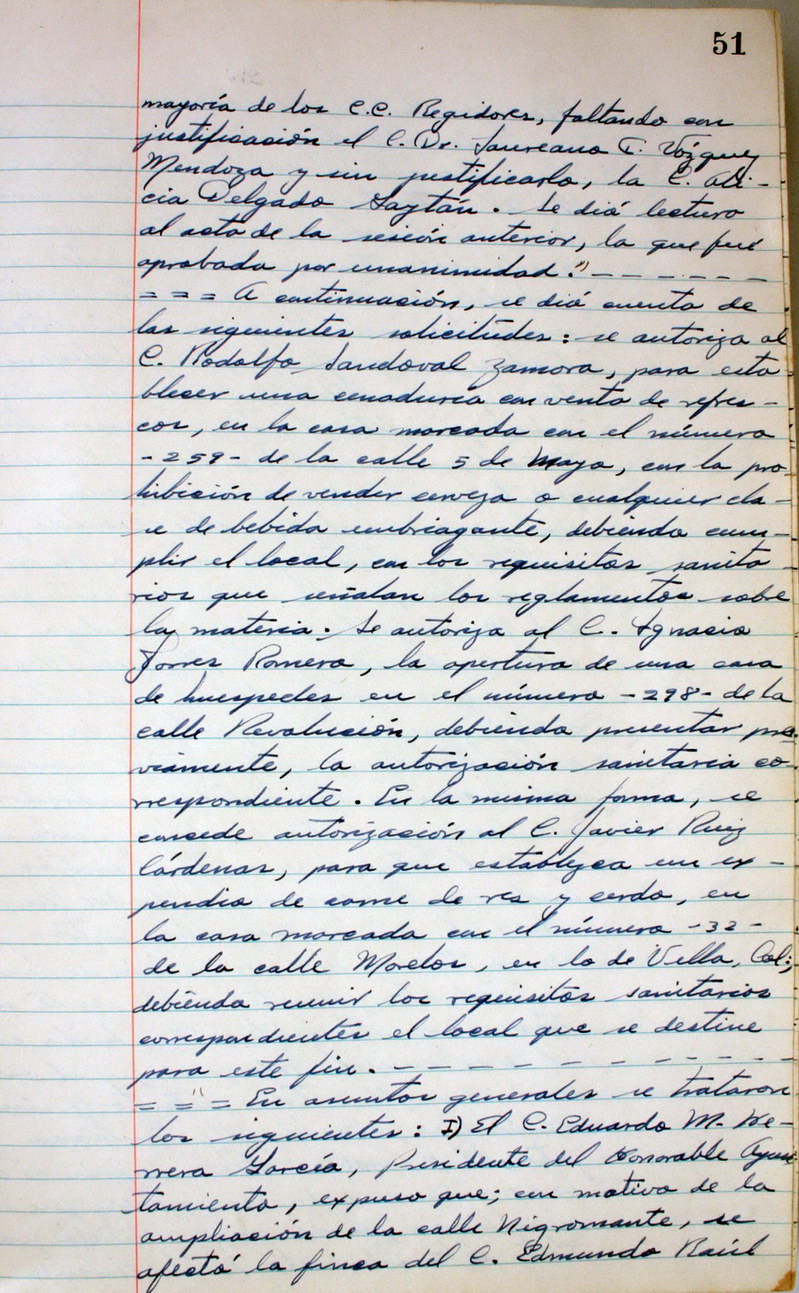 51
mayoría de los C.C. Regidores, faltando con
justificación el C. Dr. Laureano T. Vázquez
Mendoza y sin justificarlo, la C. Ali-
cia Delgado Gaytán. Se dió lectura
al acta de la sesión anterior, la que fué
aprobada por unanimidad. - - - - - - -
= = = A continuación, se dió cuenta de
las siguientes solicitudes: se autoriza al
C. Rodolfo Sandoval Zamora, para esta-
blecer una cenaduría con venta de refres-
cos, en la casa marcada con el número
-259- de la calle 5 de Mayo, con la pro-
hibición de vender cerveza o cualquier cla-
se de bebida embriagante, debiendo cum-
plir el local, con los requisitos sanita-
rios que señalan los reglamentos sobre
la materia. Se autoriza al C. Ignacio
Torres Romero, la apertura de una casa
de huespedes en el número -298- de la
calle Revolución, debiendo presentar pre-
viamente, la autorización sanitaria co-
rrespondiente. En la misma forma, se
concede autorización al C. Javier Ruiz
Cárdenas, para que establezca un ex-
pendio de carne de res y cerdo, en
la casa marcada con el número -32-
de la calle Morelos, en la de Villa, Col.;
debiendo reunir los requisitos sanitarios
correspondientes el local que se destine
para este fin. - - - - - - - - - - - -
= = = En asuntos generales se trataron
los siguientes: I) El C. Eduardo M. He-
rrera García, Presidente del Honorable Ayun-
tamiento, expuso que; con motivo de la
ampliación de la calle Nigromante, se
afectó la finca del C. Edmundo Raúl